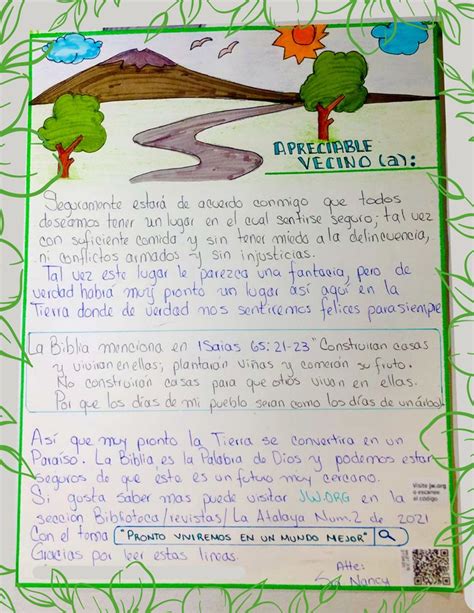 APRECIABLE
VECINO (a):
Seguramente estará de acuerdo conmigo que todos
deseamos tener un lugar en el cual sentirse seguro; tal vez
con suficiente comida y sin tener miedo a la delincuencia,
ni conflictos armados y sin injusticias.
Tal vez este lugar le parezca una fantacia, pero de
verdad habrá muy pronto un lugar así aquí en la
Tierra donde de verdad nos sentiremos felices para siempre
La Biblia menciona en Isaias 65:21-23 "Construiran casas
y viviran en ellas; plantarán viñas y comerán su fruto.
No construirán casas para que otros vivan en ellas.
Por que los días de mi pueblo seran como los días de un árbol
Así que muy pronto la Tierra se convertira en un
Paraíso. La Biblia es la Palabra de Dios y podemos estar
seguros de que éste es un futuro muy cercano.
Si gusta saber mas puede visitar JW.ORG en la
sección Biblioteca/revistas/La Atalaya Num. 2 de 2021
Con el tema "PRONTO VIVIREMOS EN UN MUNDO MEJOR"
Gracias por leer estas lineas.
Visite jw.org
o escanee
el código
Atte:
Nancy